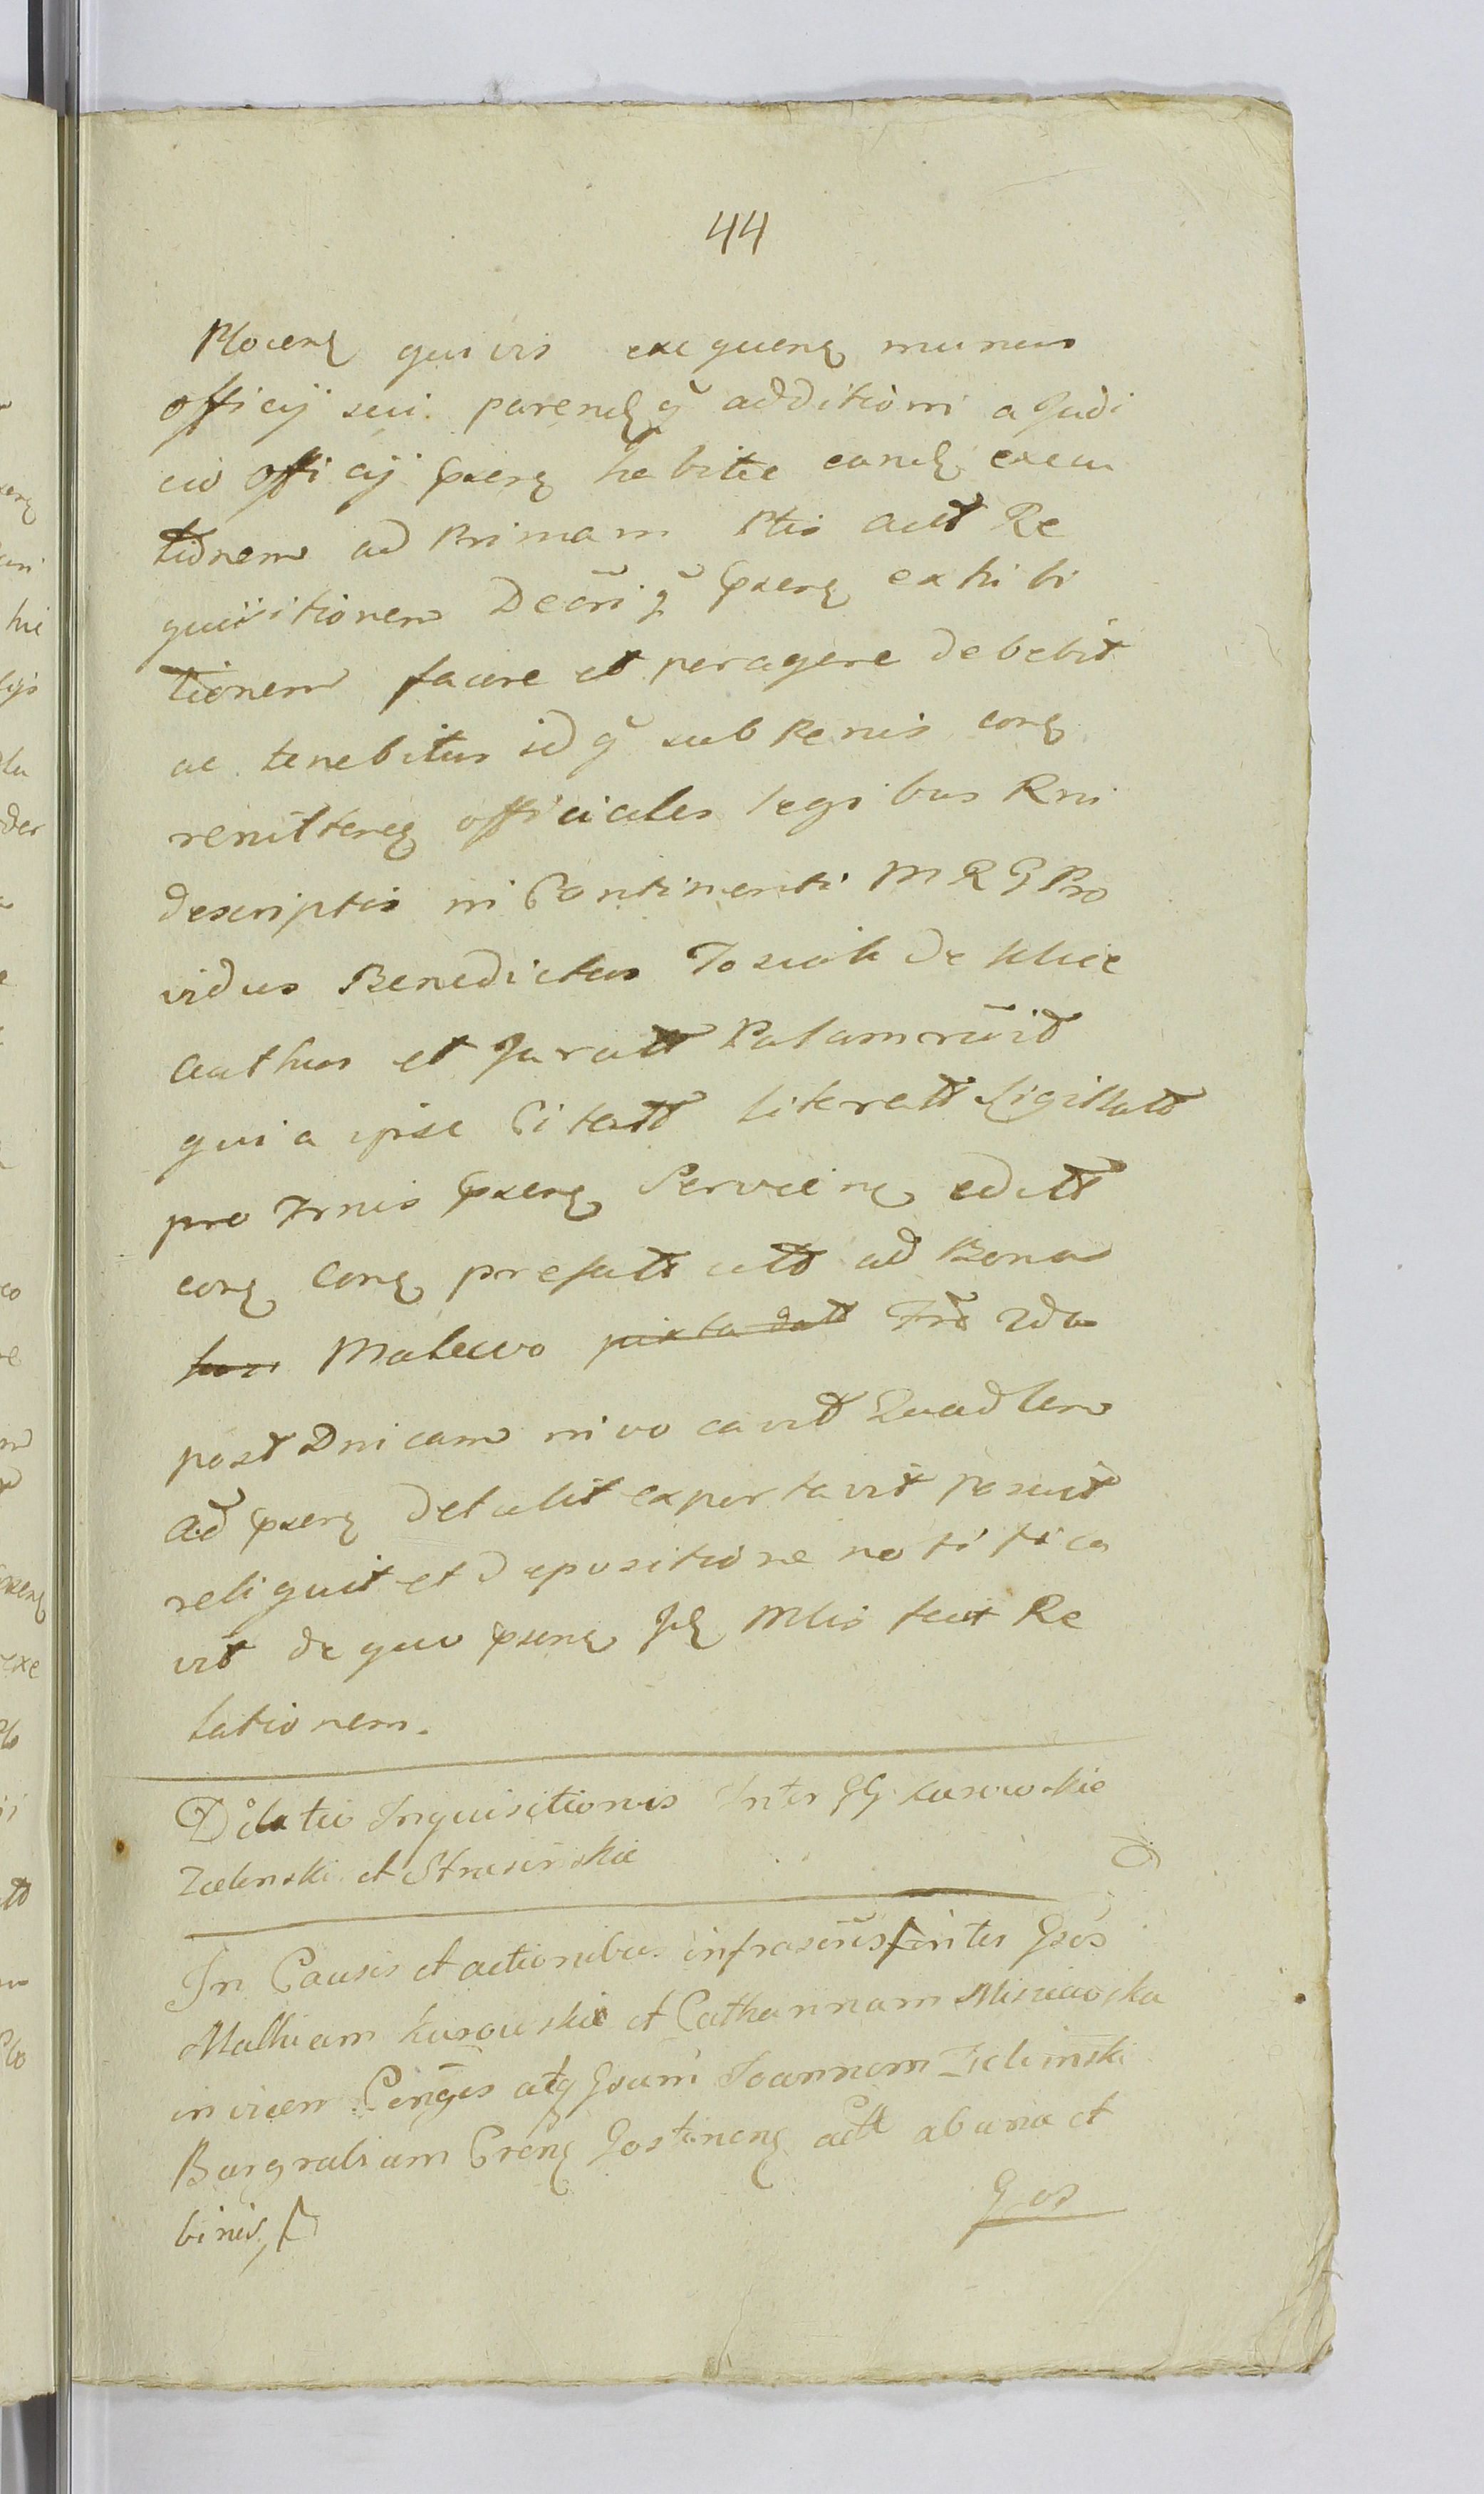 44
Plocen quivis exequens munus
officÿ sui parendq additioni a Judi
cio officÿ pxens habitae eand execu
tionem ad primam Ptis actt Re
quisitionem Decriq pxens exhibi
tionem facere et peragere debebit
ac tenebitur idq sub penis cong
renittereg officiales legibus Rni
descriptis in Continenti M R G Pro
vidus Benedictus Tosiak de
authus et Juratt Palamruit
quia ipse Citatt literatt Sigillatt
pro Trnis pxeng Servieng editt
cong cong prefatt actt ad Bona
Malewo juxta datt Frā 2da
post Dnicam invocavit Quadlem
ad pxens detulit exportavit posuit
reliquit et depositione notifica
vit de quo pxens Jd Mlis fecit Re
lationem.
Dilatio Inquisitionis Inter GG Kurowskie
Zielenski et Strusinskie
In Causis et actionibus infrascris inter Gsos
Mathiam Kurowskie et Catharinam
invicem Conges atq Gsum Joannem Zielinski
Burgrabium Crens Gostinens actt ab una et
binis
Gos